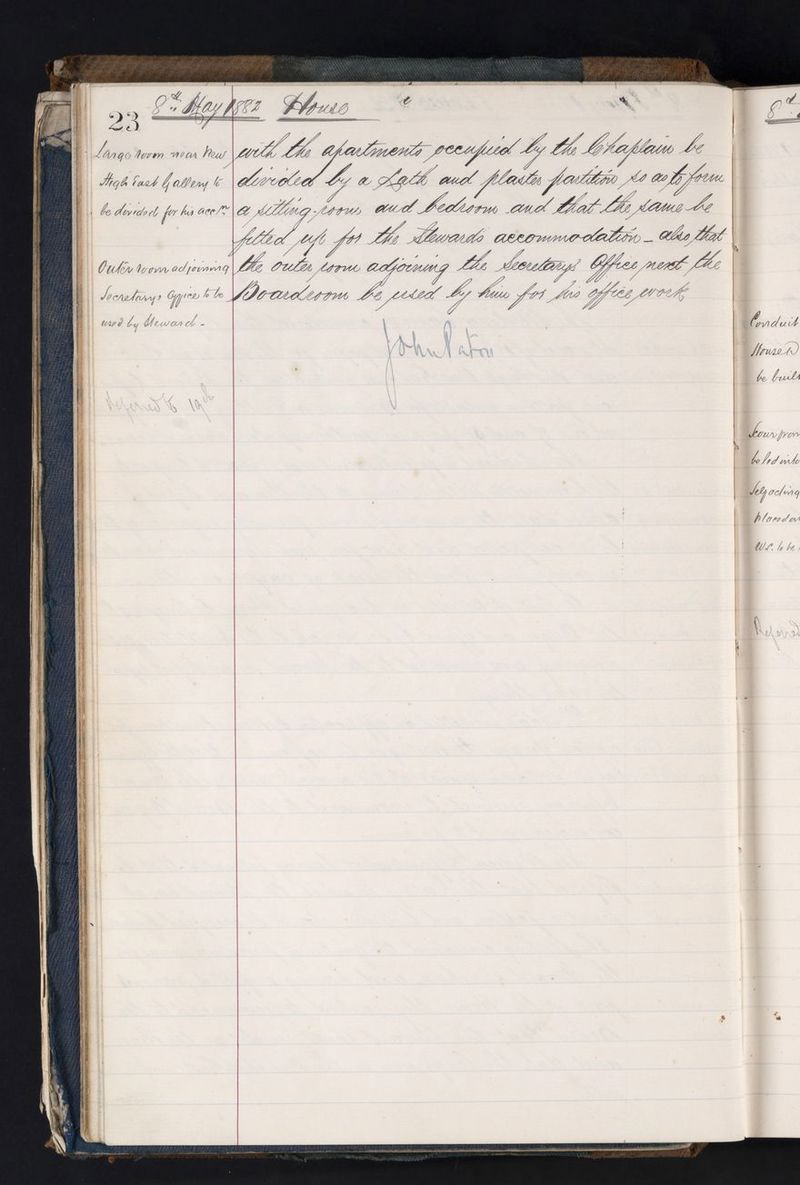 23 8th. May 1882 House
Large room near New
High East Gallery to
be divided for his accn.
with the apartments occupied by the Chaplain be
divided by a Lath and plaster partition so as to form
a sitting-room and bedroom and that the same be
fitted up for the Stewards accommodation - also that
Outer room adjoining
Secretarys Office to be
used by Steward -
the outer room adjoining the Secretary's Office next the
Boardroom be used by him for his office work
John Paton
Referred to 19th
8th.
Conduit
House
be built
be led into
Self acting
W.C. to be
Referred